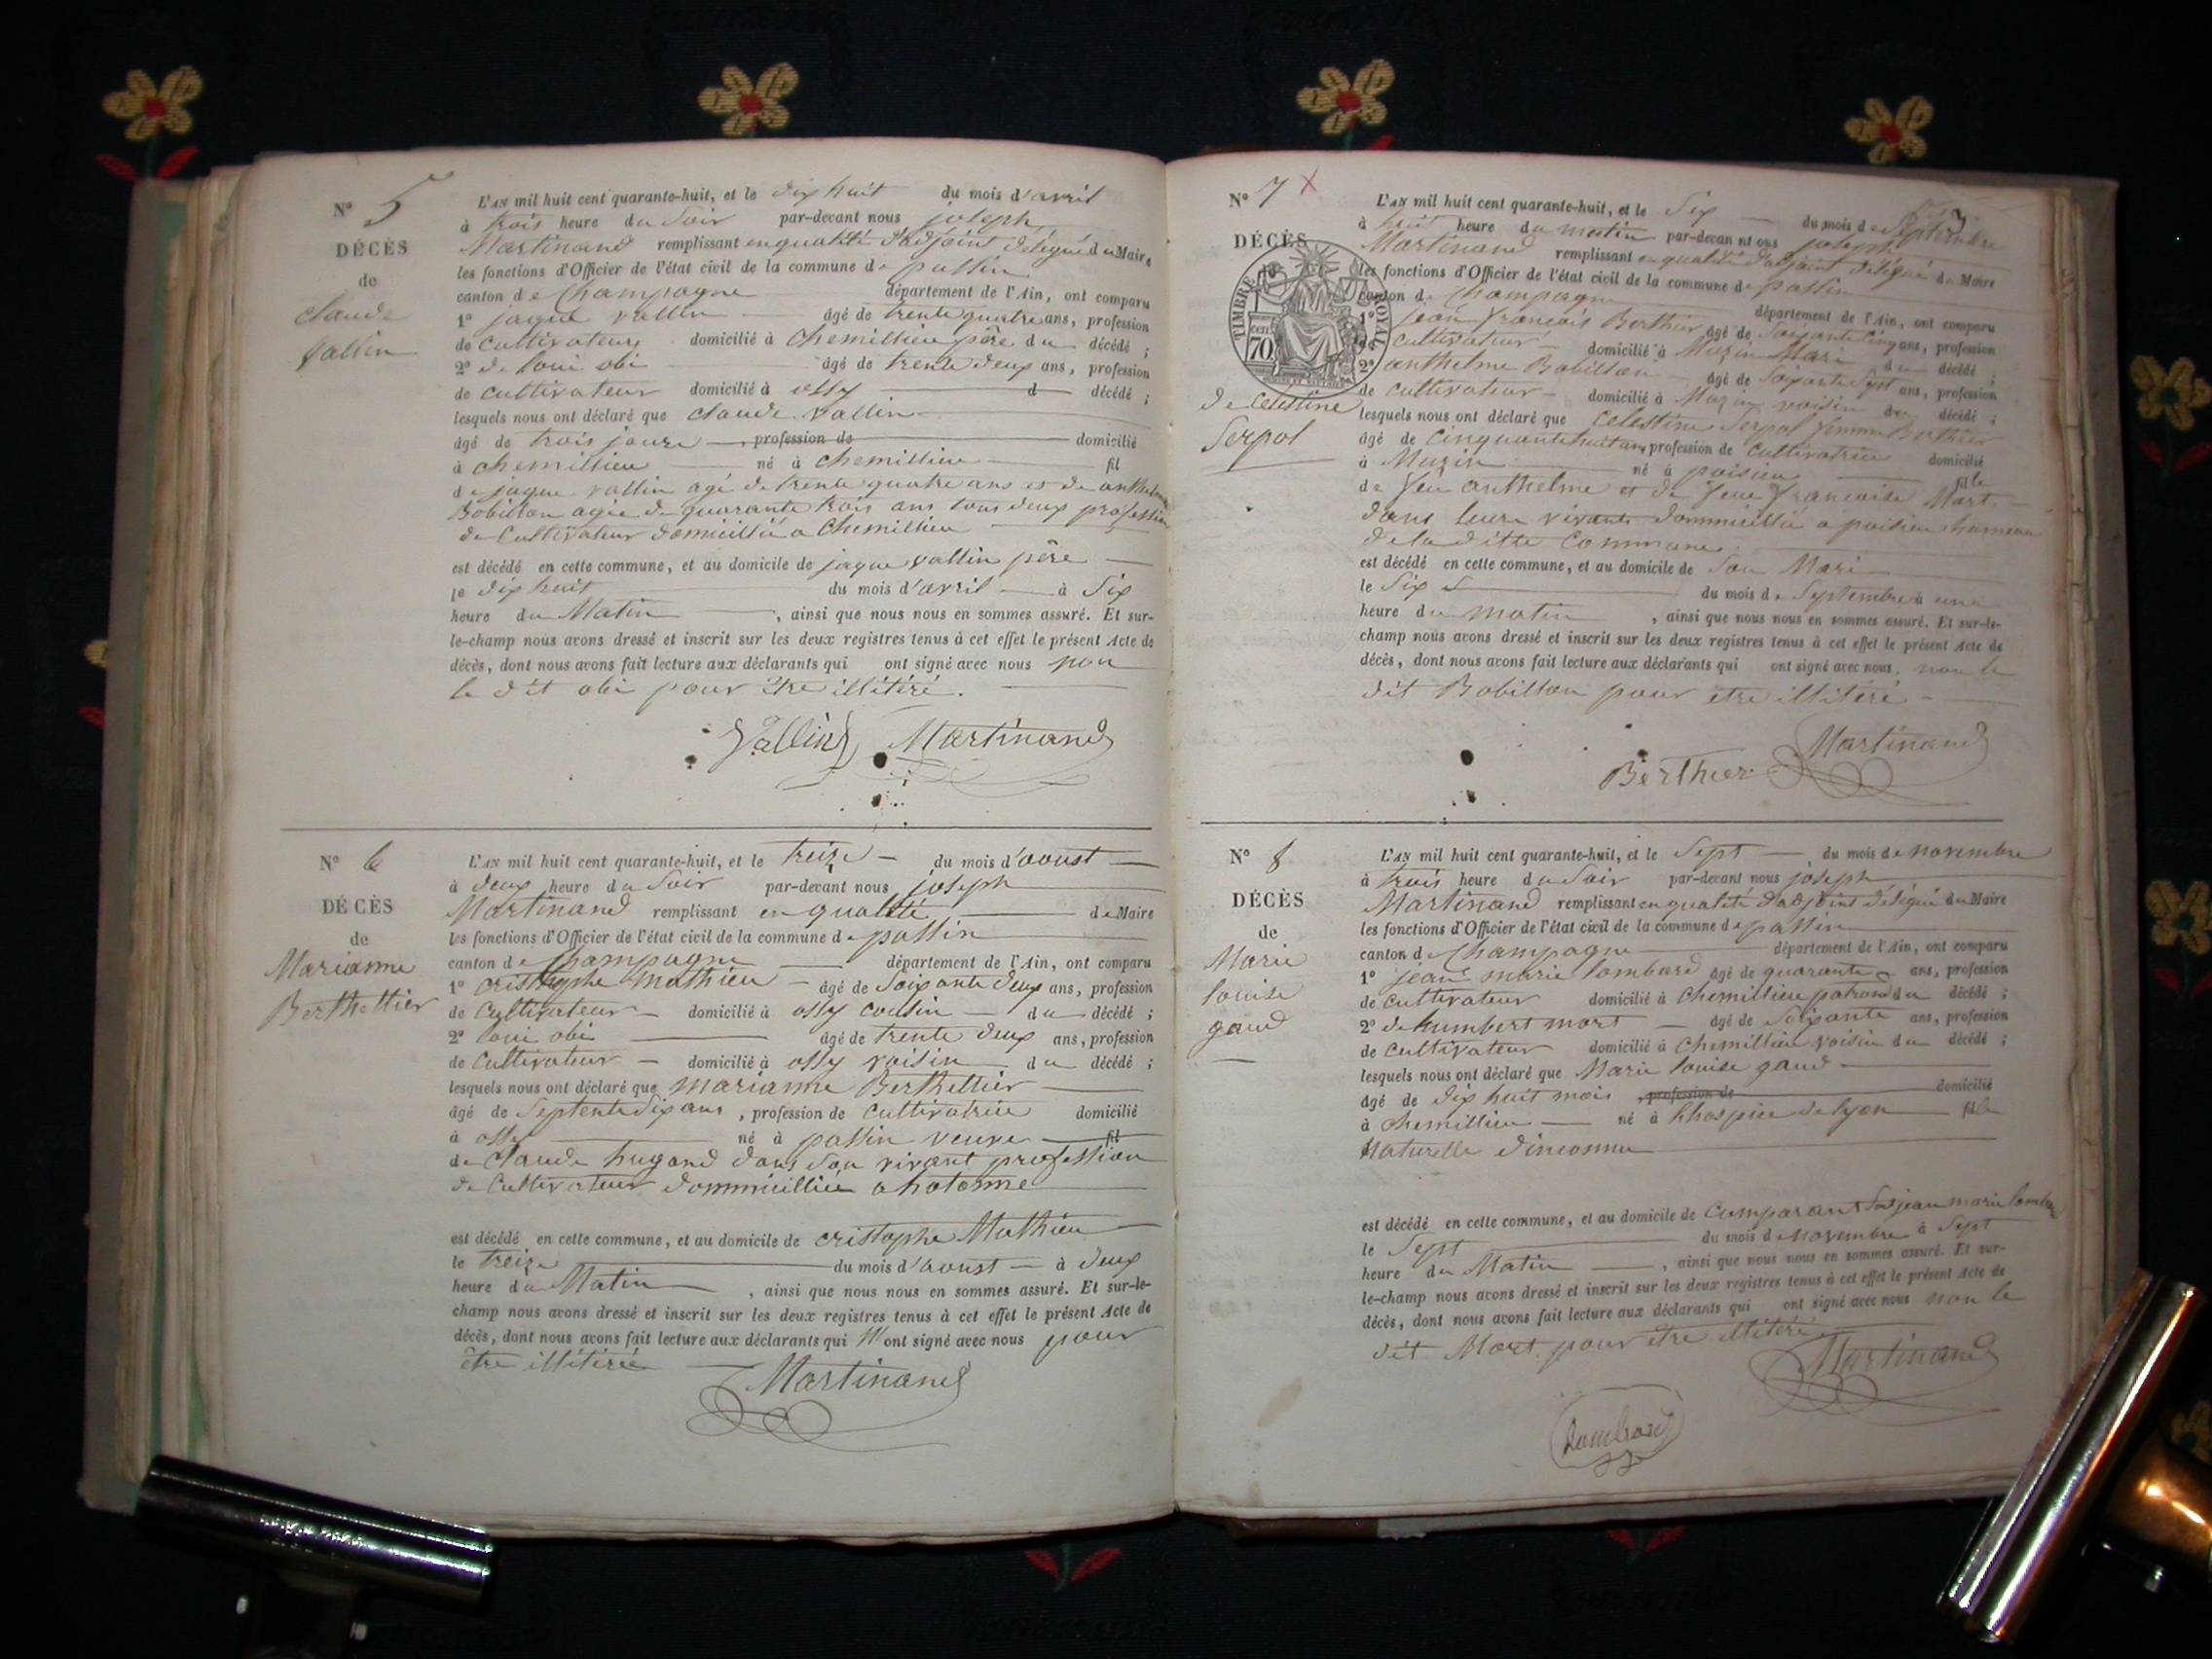 N° 5
DÉCÈS
de
claude
Vallin
L'AN mil huit cent quarante-huit, et le dix huit du mois d'avril
à trois heure du Soir par-devant nous joseph
Martinand remplissant en qualité d'adjoint délégué du Maire
les fonctions d'Officier de l'état civil de la commune de passin
canton de Champagne département de l'Ain, ont comparu
1° jaque vallin âgé de trente quatre ans, profession
de cultivateur domicilié à Chemillieu père du décédé ;
2° de loui obi âgé de trente deux ans, profession
de cultivateur domicilié à ossy d décédé ;
lesquels nous ont déclaré que claude vallin
âgé de trois jours , profession de domicilié
à chemillieu né à chemillieu fil
de jaque vallin agé de trente quatre ans et de anthelmette
Bobillon agée de quarante trois ans tous deux profession
de Cultivateur domicillié a Chemillieu
est décédé en cette commune, et au domicile de jaque vallin père
le dix huit du mois d'avril à Six
heure du Matin , ainsi que nous nous en sommes assuré. Et sur-
le-champ nous avons dressé et inscrit sur les deux registres tenus à cet effet le présent Acte de
décès, dont nous avons fait lecture aux déclarants qui ont signé avec nous non
le dit obi pour être illitéré.
Vallin Martinand
N° 6
DÉCÈS
de
Marianne
Berthettier
L'AN mil huit cent quarante-huit, et le treize du mois d'aoust
à deux heure du Soir par-devant nous joseph
Martinand remplissant en qualité de Maire
les fonctions d'Officier de l'état civil de la commune de passin
canton de Champagne département de l'Ain, ont comparu
1° cristophe Mathieu âgé de Soixante deux ans, profession
de Cultivateur domicilié à ossy cousin du décédé ;
2° loui obi âgé de trente deux ans, profession
de Cultivateur domicilié à ossy voisin du décédé ;
lesquels nous ont déclaré que marianne Berthettier
âgé de Septente Six ans , profession de Cultivatrice domicilié
à ossy né à passin veuve fil
de Claude hugand dans Son vivant profession
de Cultivateur dommicillié a hotonne
est décédé en cette commune, et au domicile de cristophe Mathieu
le treize du mois d'aoust à deux
heure du Matin , ainsi que nous nous en sommes assuré. Et sur-le-
champ nous avons dressé et inscrit sur les deux registres tenus à cet effet le présent Acte de
décès, dont nous avons fait lecture aux déclarants qui N'ont signé avec nous pour
être illitérée
Martinand
N° 7 X
DÉCÈS
TIMBRE ROYAL
cen
70
de Celestine
Serpol
L'AN mil huit cent quarante-huit, et le Six du mois de Septembre
à huit heure du matin par-devan nt ous joseph
Martinand remplissant en qualité d'adjoint délégué du Maire
les fonctions d'Officier de l'état civil de la commune de passin
canton de Champagne département de l'Ain, ont comparu
1° jean françois Berthier âgé de Soixante cinq ans, profession
cultivateur domicilié à Muzin Mari du décédé ;
2° anthelme Bobillon âgé de Soixante Sept ans, profession
de cultivateur domicilié à Muzin voisin du décédé ;
lesquels nous ont déclaré que Celestine Serpol femme Berthier
âgé de Cinquante huit ans profession de Cultivatrice domicilié
à Muzin né à poisieu fille
de feu anthelme et de feue francoise Mort
dans leurs vivants dommicillié a poisieu hameau
de la ditte Commune
est décédé en cette commune, et au domicile de Son Mari
le Six du mois de Septembre à une
heure du matin , ainsi que nous nous en sommes assuré. Et sur-le-
champ nous avons dressé et inscrit sur les deux registres tenus à cet effet le présent Acte de
décès, dont nous avons fait lecture aux déclarants qui ont signé avec nous, non le
dit Bobillon pour etre illitéré
Berthier Martinand
N° 8
DÉCÈS
de
Marie
louise
gaud
L'AN mil huit cent quarante-huit, et le Sept du mois de novembre
à trois heure du Soir par-devant nous joseph
Martinand remplissant en qualité d'adjoint délégué du Maire
les fonctions d'Officier de l'état civil de la commune de passin
canton de Champagne département de l'Ain, ont comparu
1° jean marie lombard âgé de quarante ans, profession
de cultivateur domicilié à chemillieu patron du décédé ;
2° de humbert mort âgé de Soixante ans, profession
de cultivateur domicilié à chemillieu voisin du décédé ;
lesquels nous ont déclaré que Marie louise gaud
âgé de dix huit mois , profession de domicilié
à chemillieu né à lhospice de lyon fille
Naturelle d'inconnu
est décédé en cette commune, et au domicile de Comparant jean marie lombard
le Sept du mois de novembre à Sept
heure du Matin , ainsi que nous nous en sommes assuré. Et sur-
le-champ nous avons dressé et inscrit sur les deux registres tenus à cet effet le présent Acte de
décès, dont nous avons fait lecture aux déclarants qui ont signé avec nous non le
dit Mort pour être illitéré
Martinand
Lombard